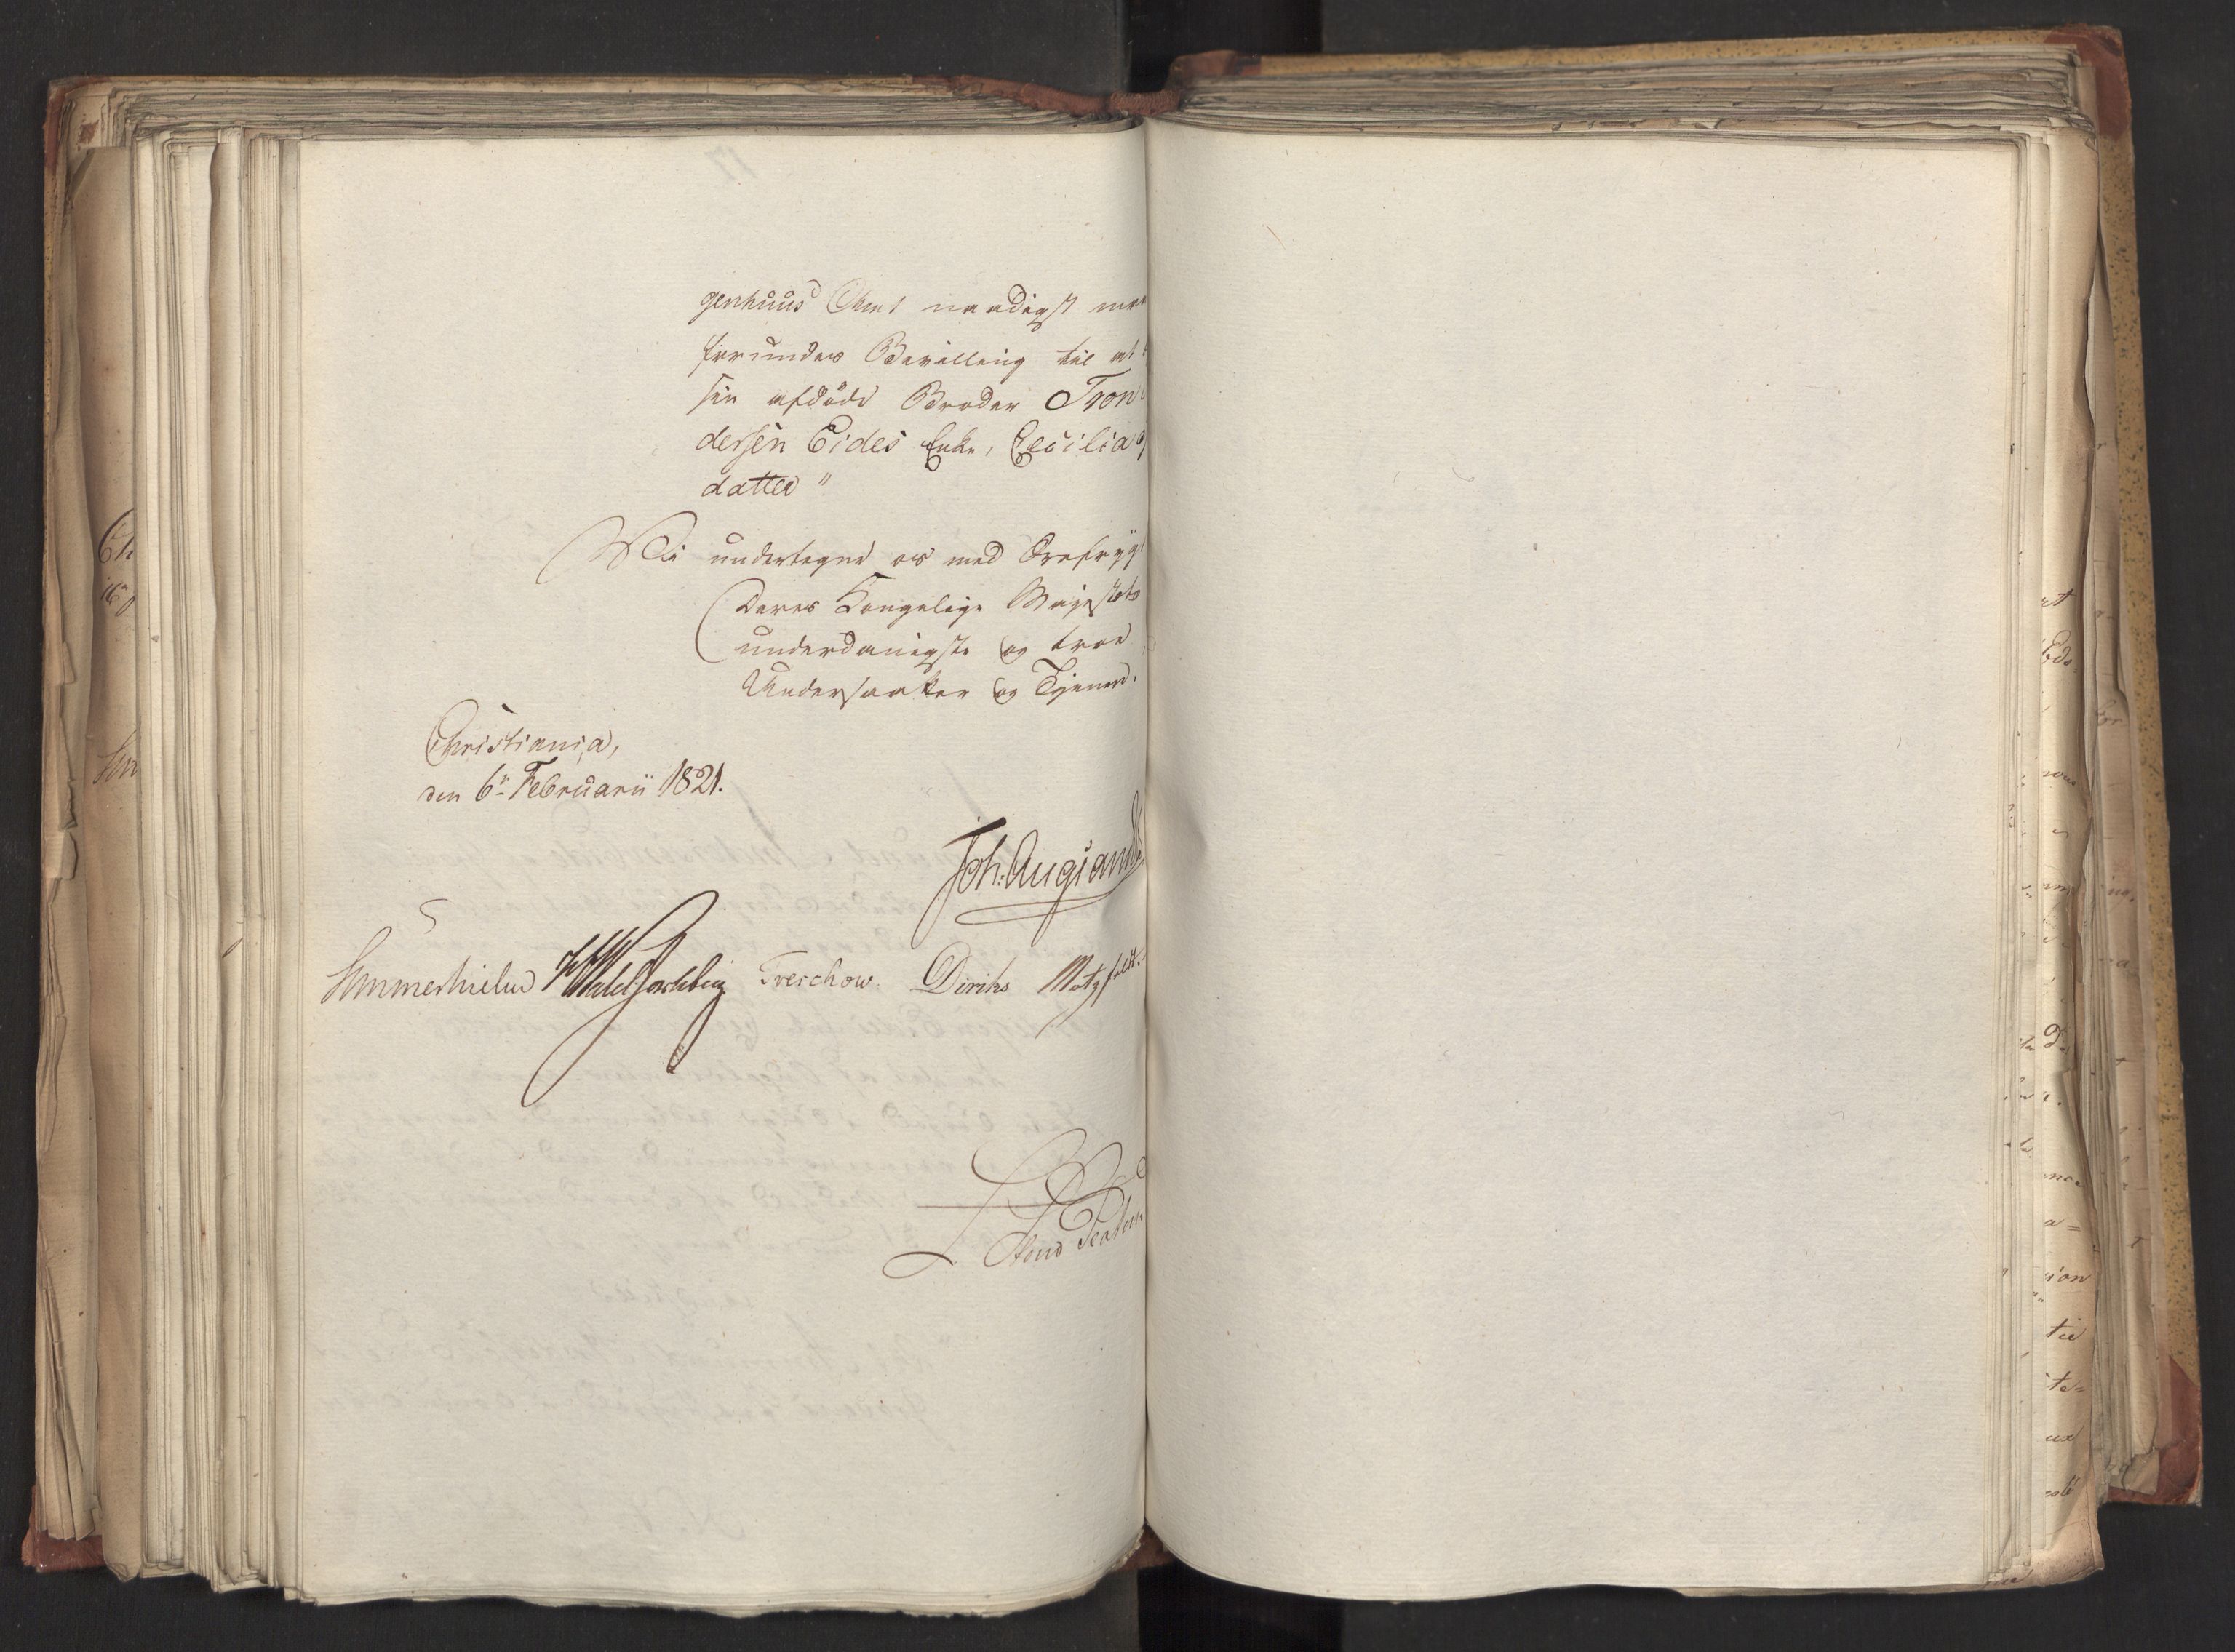 genhuus Amt naadigst maa
forundes Bevilling til at
sin afdøde Broder Tron
dersen Eides Enke, Cecilia
datter"
Vi undertegne os med Ærefrygt
Deres Kongelige Majestets
underdanigste og troe
Undersaatter og Tjenere.
Christiania,
den 6te Februarii 1821.
Joh. Aug. Sand
Sommerhielm Treschow. Diriks Motzfeldt.